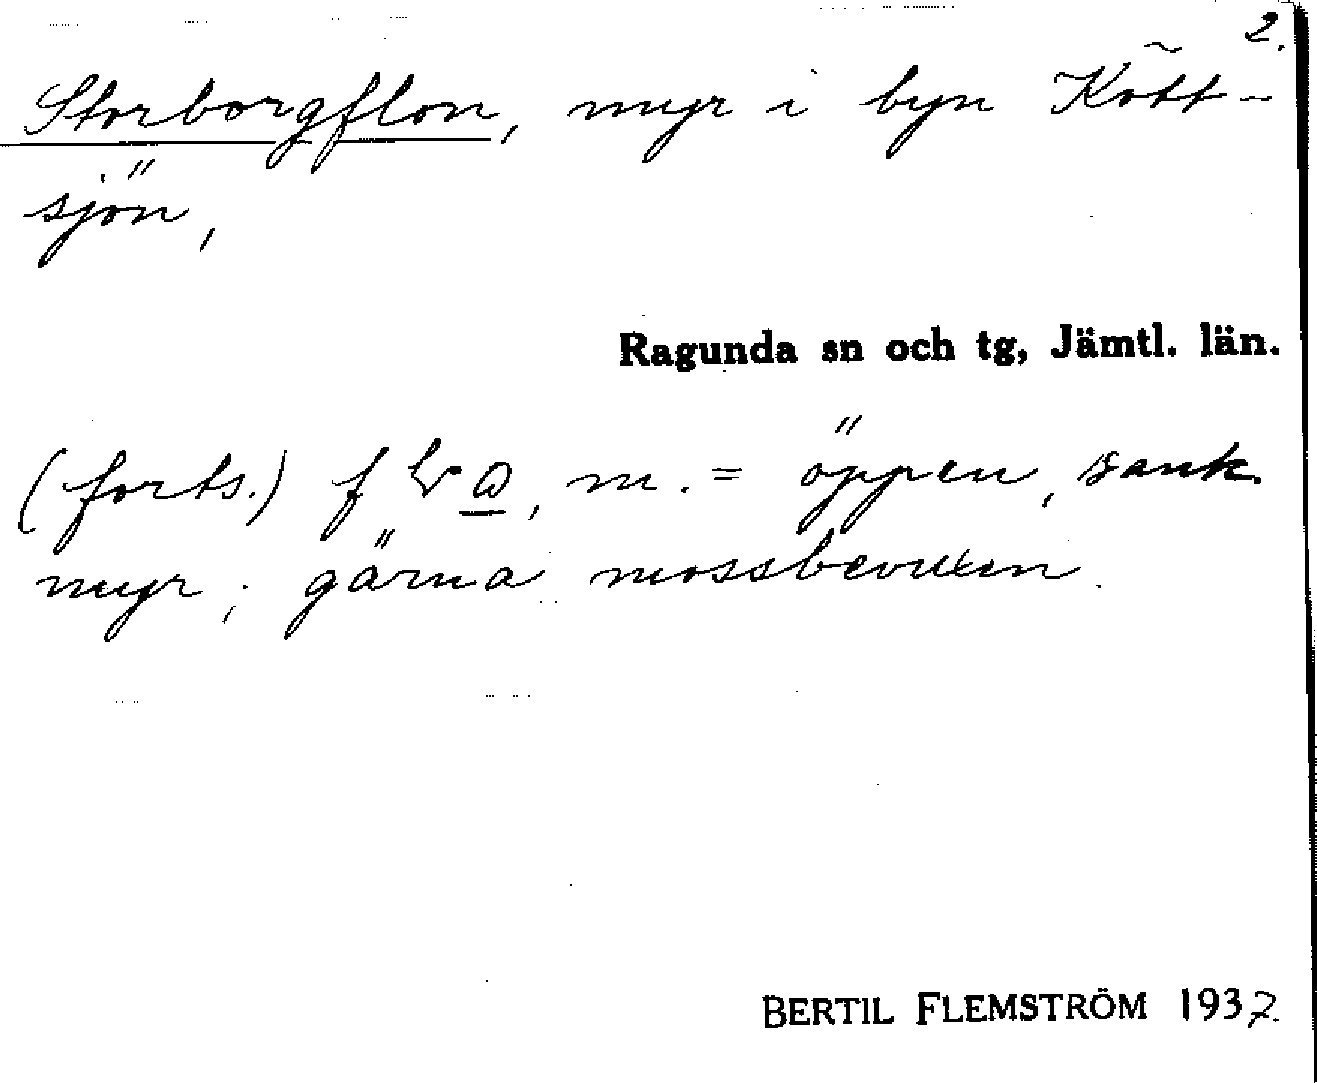 2.
Storborgflon, myr i byn Kött-
sjön,
Ragunda sn och tg, Jämtl. län.
(forts.) m. = öppen, sank
myr; gärna mossbevuxen.
BERTIL FLEMSTRÖM 1937